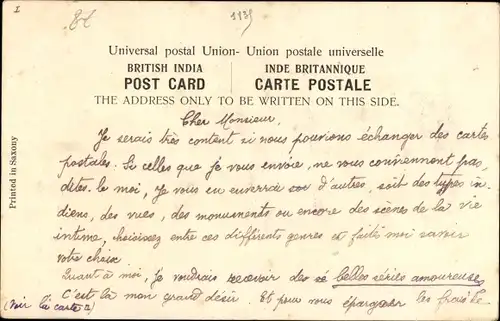 I
1135
Universal postal Union- Union postale universelle
BRITISH INDIA
POST CARD
INDE BRITANNIQUE
CARTE POSTALE
THE ADDRESS ONLY TO BE WRITTEN ON THIS SIDE.
Printed in Saxony
Cher Monsieur,
Je serais très content si nous pouvions échanger des cartes
postales. Si celles que je vous envoie, ne vous conviennent pas,
dites-le moi, je vous en enverrai d'autres, soit des types in-
diens, des vues, des monuments ou encore des scènes de la vie
intime, choisissez entre ces différents genres et faites moi savoir
votre choix
Quant à moi, je voudrais recevoir des belles séries amoureuses
C'est là mon grand désir. Et pour vous épargner les frais de
(Voir la carte 2)